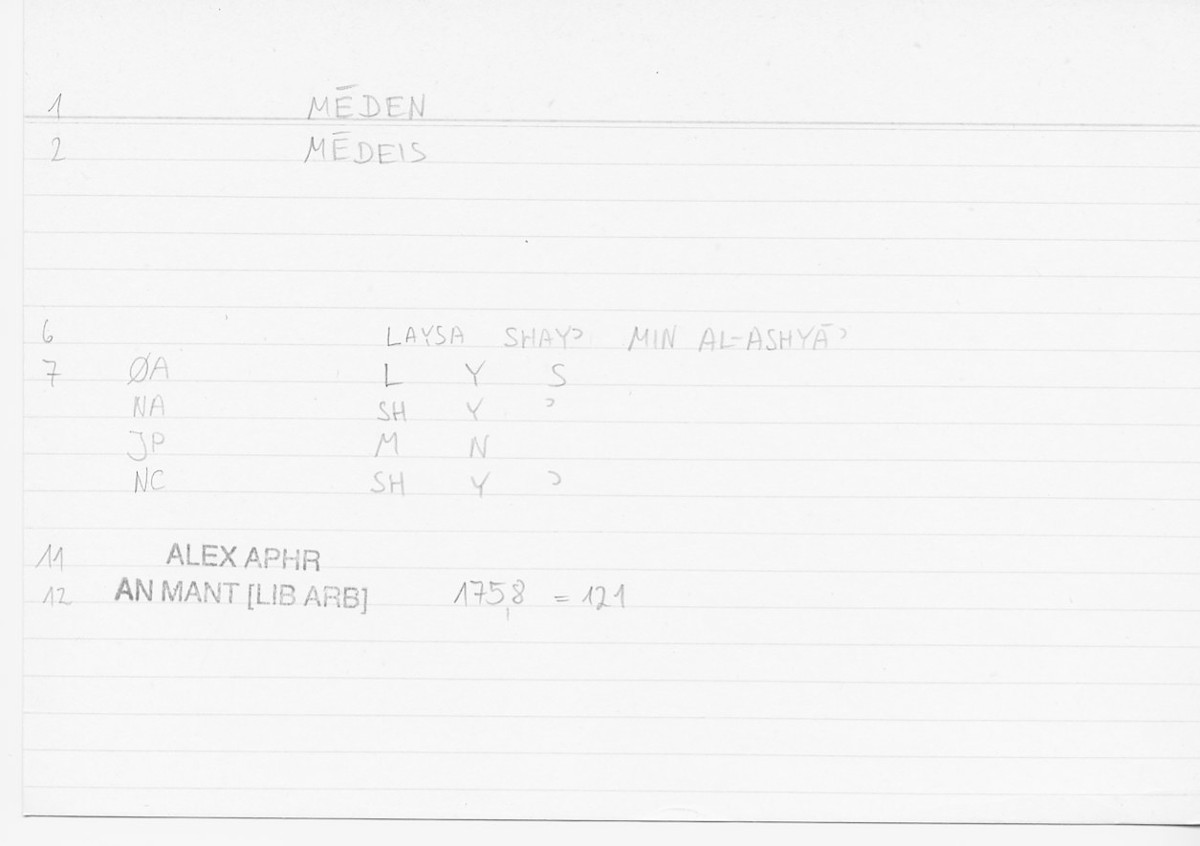 1 MĒDEN
2 MĒDEIS
6 LAYSA SHAYʾ MIN AL-ASHYĀʾ
7 ØA L Y S
NA SH Y ʾ
JP M N
NC SH Y ʾ
11 ALEX APHR
12 AN MANT [LIB ARB] 175,8 = 121